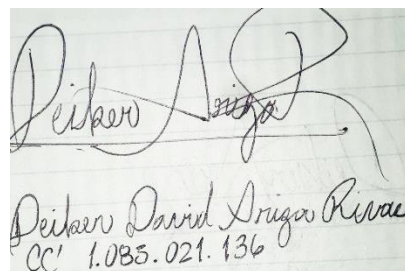 Deiber Ariza R
Deiber David Ariza Rivas
CC' 1.083.021.136